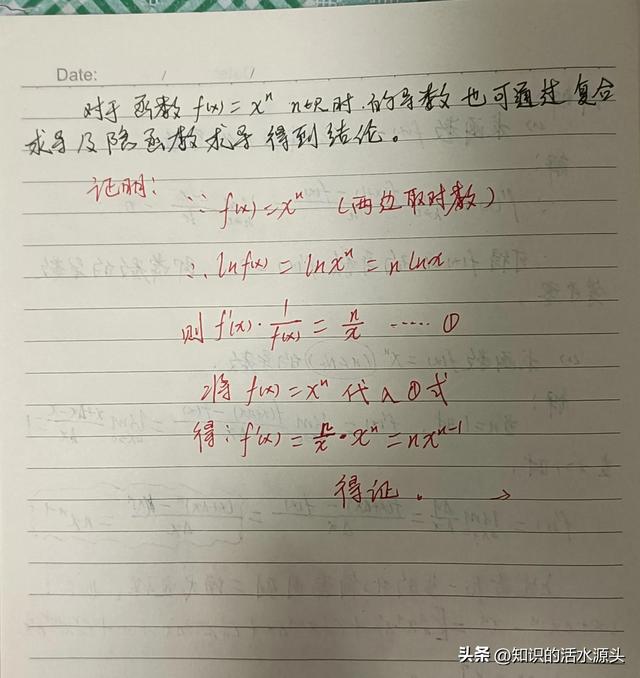 Date: / /
对于函数 f(x) = xⁿ n∈R时.的导数也可通过复合
求导及隐函数求导得到结论。
证明: ∵ f(x) = xⁿ (两边取对数)
∴ lnf(x) = lnxⁿ = n lnx
则 f'(x)·1/f(x) = n/x ······ ①
将 f(x) = xⁿ 代入①式
得: f'(x) = n/x · xⁿ = nxⁿ⁻¹
得证. →
头条 @知识的活水源头